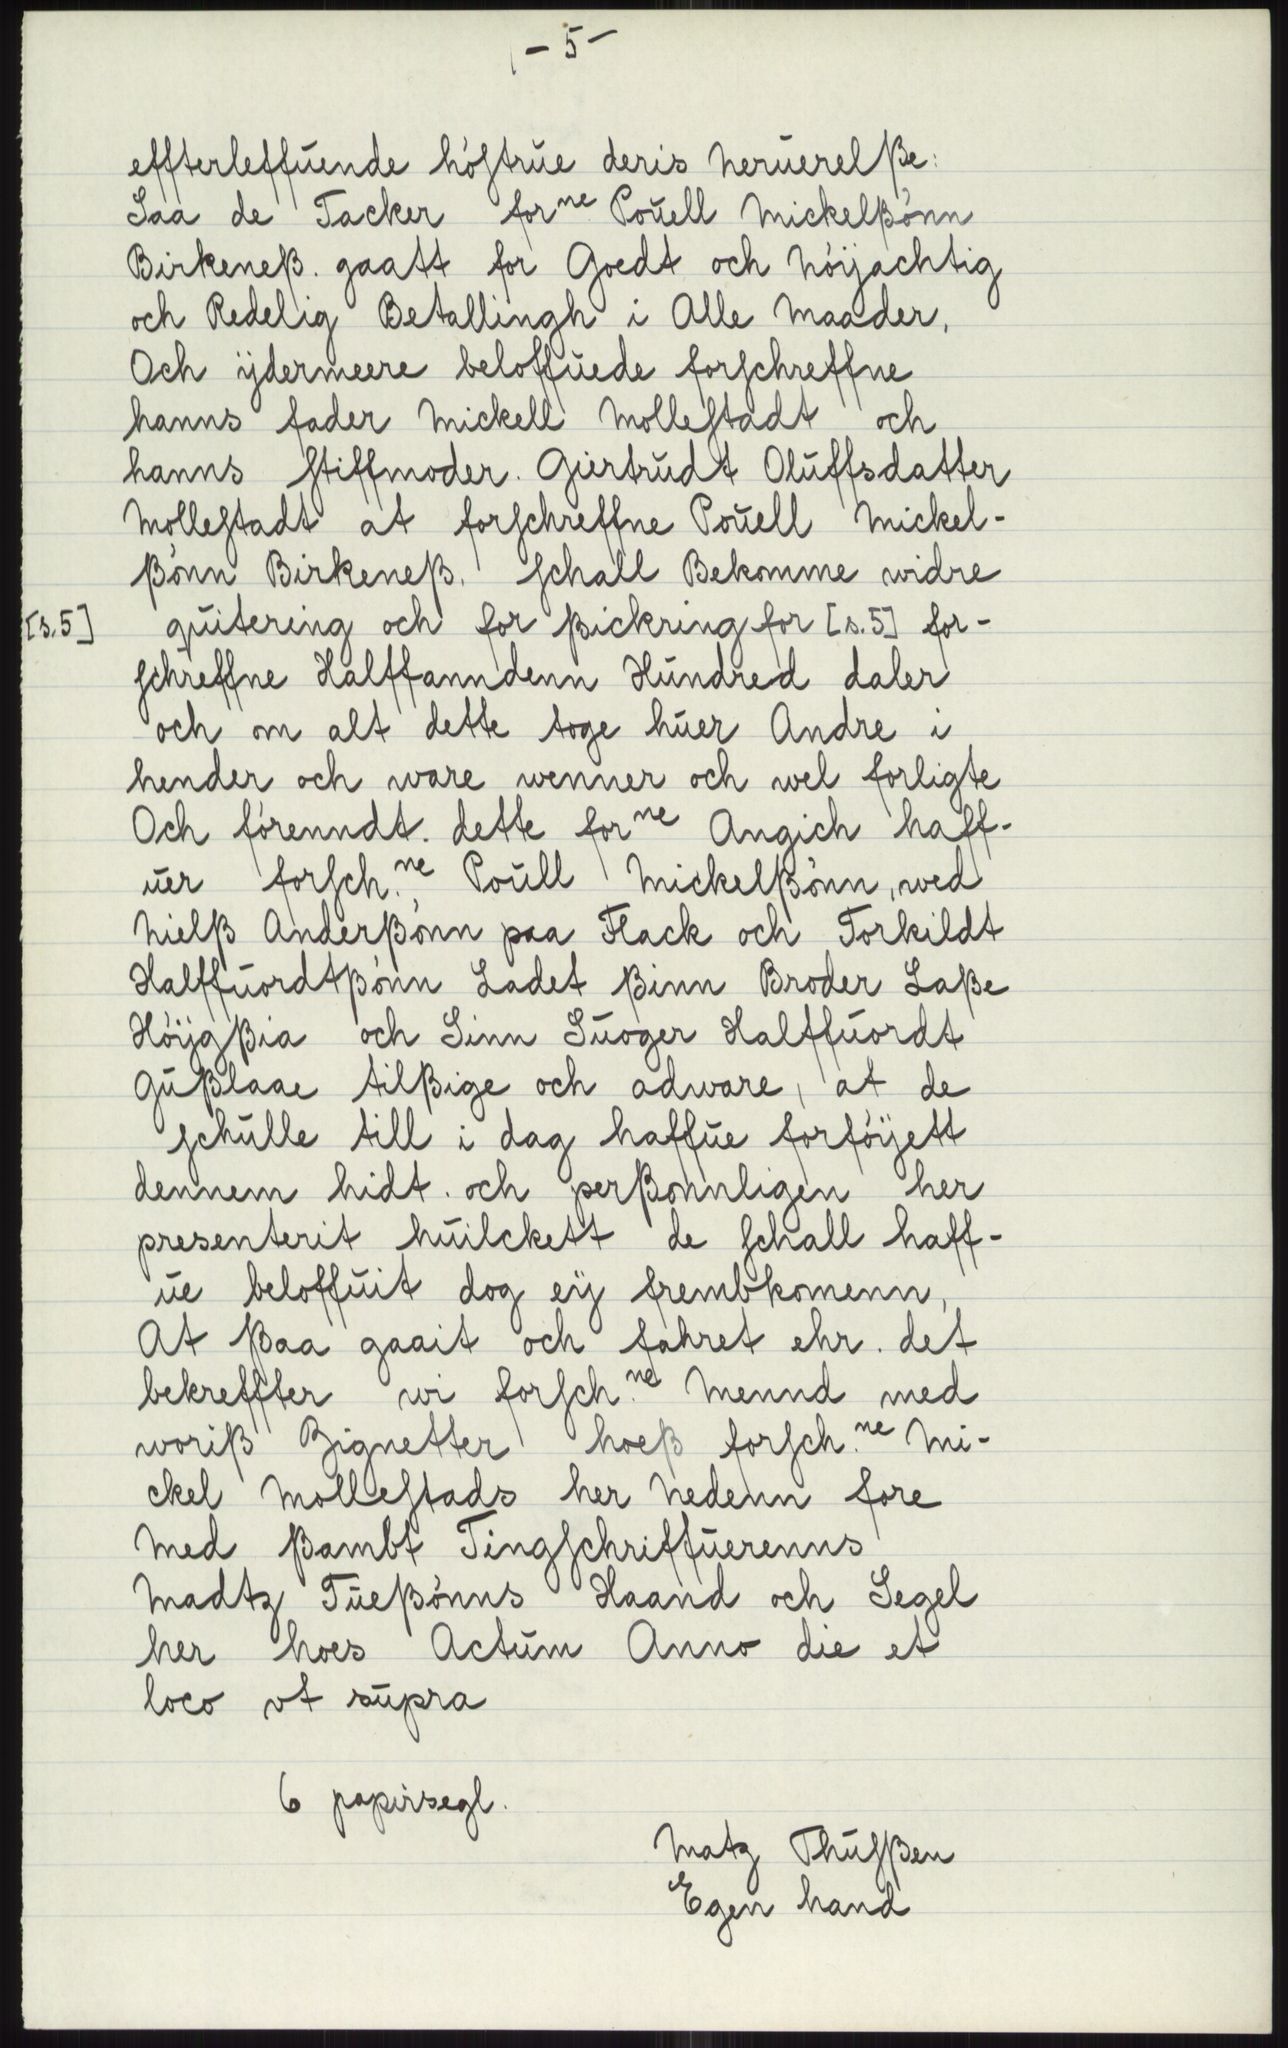 - 5 -
effterleffuende höstrue deris neruerelße:
Saa de Tacker forne Pouell Mickelßönn
Birkeneß. gaatt for Goedt och Nöijachtig
och Redelig Betallingh i Alle Maader.
Och ijdermeere beloffuede forschreffne
hanns fader Mickell Mollestadt och
hanns stiffmoder. Giertrudt Oluffsdatter
Mollestadt at forschreffne Pouell Mickel-
ßönn Birkeneß. schall Bekomme widre
[s.5] quitering och for ßickring for [s.5] for-
schreffne Halffanndenn Hundred daler
och om alt dette toge huer Andre i
hender och ware wenner och wel forligte
Och förenndt. dette forne Angich haff-
uer forsch.ne Poull Mickelßönn, wed
Nielß Anderßönn paa Flack och Torkildt
Halffuordtßönn Ladet ßinn Broder Laße
Höijgßia och Sinn Suoger Halffuordt
Gußlaae tilßige och adware, at de
schulle till i dag haffue forföijett
dennem hidt. och perßonnligen her
presenterit huilckett de schall haff-
ue beloffuit dog eij frembkomenn,
At ßaa gaait och fahret ehr. det
bekreffter wi forsch.ne Mennd med
woriß Zignetter hoeß forsch.ne Mi-
ckel Mollestads her Nedenn fore
Med ßambt Tingschriffuerenns
Madtz Tueßönns Haand och Segel
her hoes Actum Anno die et
loco vt supra
6 papirsegl.
Matz Thusßen
Egen hand